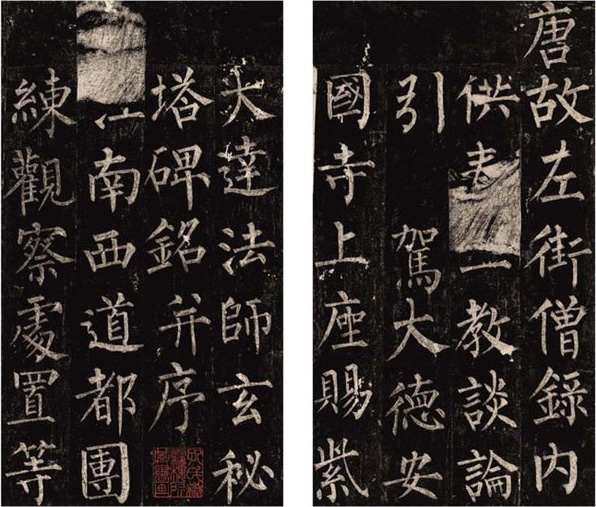 唐故左街僧錄內
供教談論
引駕大德安
國寺上座賜紫
大達法師玄秘
塔碑銘并序
南西道都團
練觀察處置等